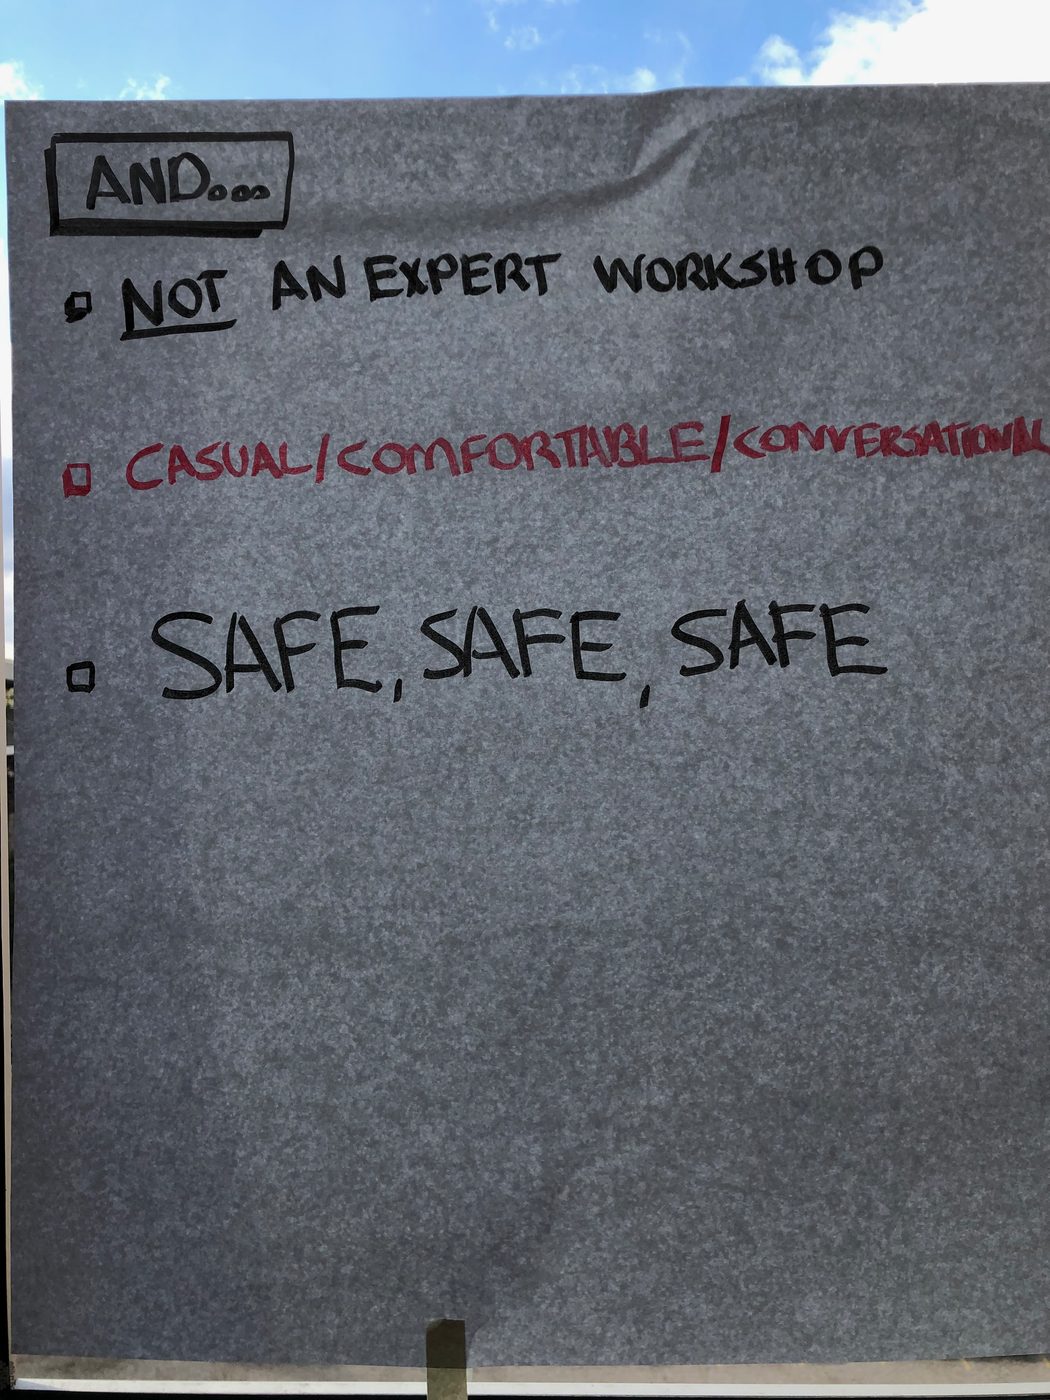 AND...
NOT AN EXPERT WORKSHOP
CASUAL/COMFORTABLE/CONVERSATIONAL
SAFE, SAFE, SAFE